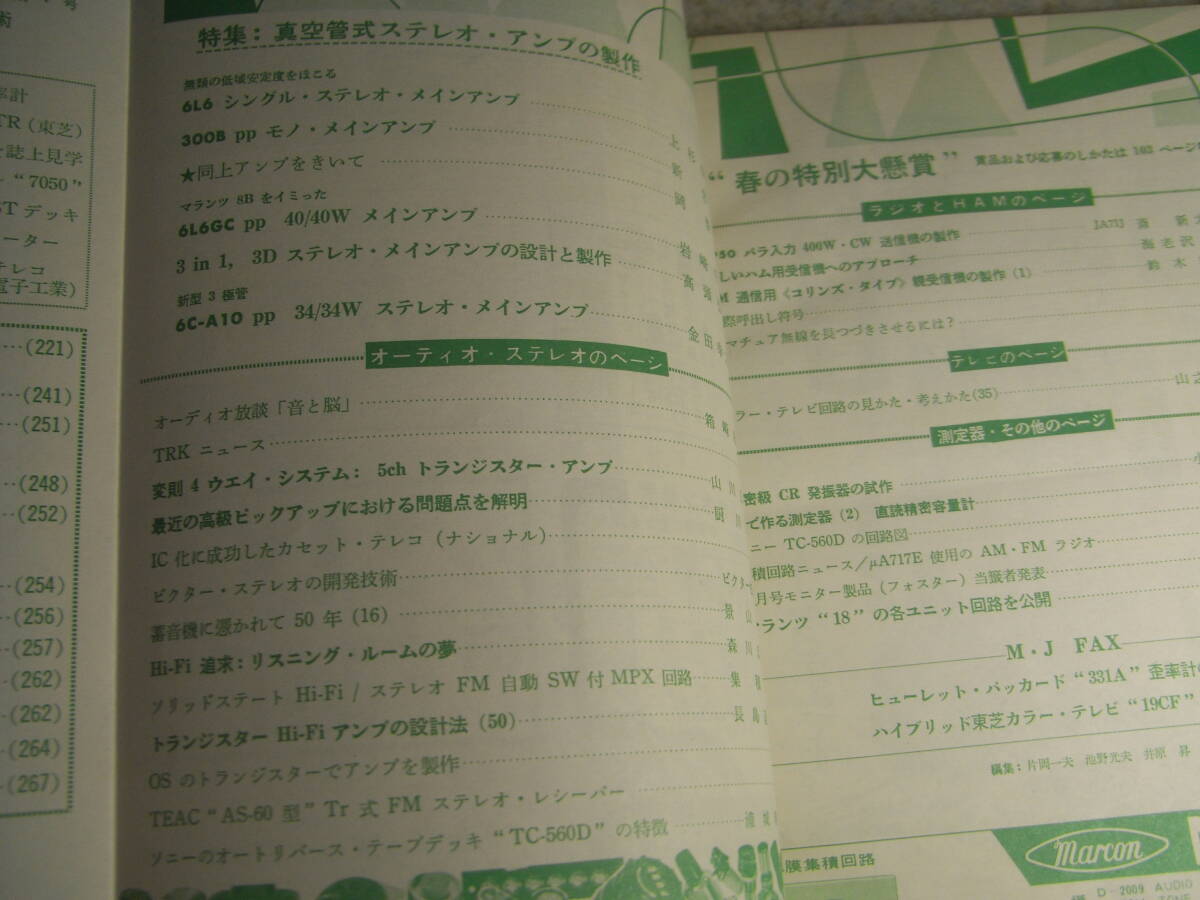 号
術
率計
TR (東芝)
誌上見学
“7050”
STデッキ
ーター
テレコ
電子工業)
(221)
(241)
(251)
(248)
(252)
(254)
(256)
(257)
(262)
(262)
(264)
(267)
特集: 真空管式ステレオ・アンプの製作
無類の低域安定度をほこる
6L6 シングル・ステレオ・メインアンプ
上杉
300B pp モノ・メインアンプ
新
★同上アンプをきいて
岡
マランツ 8B をイミった
6L6GC pp 40/40W メインアンプ
岩崎
3 in 1, 3D ステレオ・メインアンプの設計と製作
高
新型3極管
6C-A10 pp 34/34W ステレオ・メインアンプ
金田
オーディオ・ステレオのページ
オーディオ放談「音と脳」
箱
TRK ニュース
変則 4 ウエイ・システム: 5ch トランジスター・アンプ
山川
最近の高級ピックアップにおける問題点を解明
厨川
IC 化に成功したカセット・テレコ (ナショナル)
ビクター・ステレオの開発技術
ビクター
蓄音機に憑かれて 50 年 (16)
景山
Hi-Fi 追求: リスニング・ルームの夢
森川
ソリッドステート Hi-Fi / ステレオ FM 自動 SW 付 MPX 回路
集
トランジスター Hi-Fi アンプの設計法 (50)
長島
OS のトランジスターでアンプを製作
TEAC “AS-60 型” Tr 式 FM ステレオ・レシーバー
ソニーのオートリバース・テープデッキ “TC-560D” の特徴
“春の特別大懸賞” 賞品および応募のしかたは 163 ページ
ラジオとHAMのページ
50 パラ入力 400W・CW 送信機の製作
JA7IJ 斎 新
しいハム用受信機へのアプローチ
海老沢
M 通信用《コリンズ・タイプ》親受信機の製作 (1)
鈴木
際呼出し符号
マチュア無線を長つづきさせるには?
テレビのページ
ラー・テレビ回路の見かた・考えかた(35)
山
測定器・その他のページ
密級 CR 発振器の試作
で作る測定器 (2) 直読精密容量計
ニー TC-560D の回路図
積回路ニュース/μA717E 使用の AM・FM ラジオ
月号モニター製品 (フォスター) 当籤者発表
ランツ “18” の各ユニット回路を公開
M・J FAX
ヒューレット・パッカード “331A” 歪率計の
ハイブリッド東芝カラー・テレビ “19CF”
編集: 片岡一夫 池野光夫 井原 昇
膜集積回路
marcon
D-2009 AUDIO